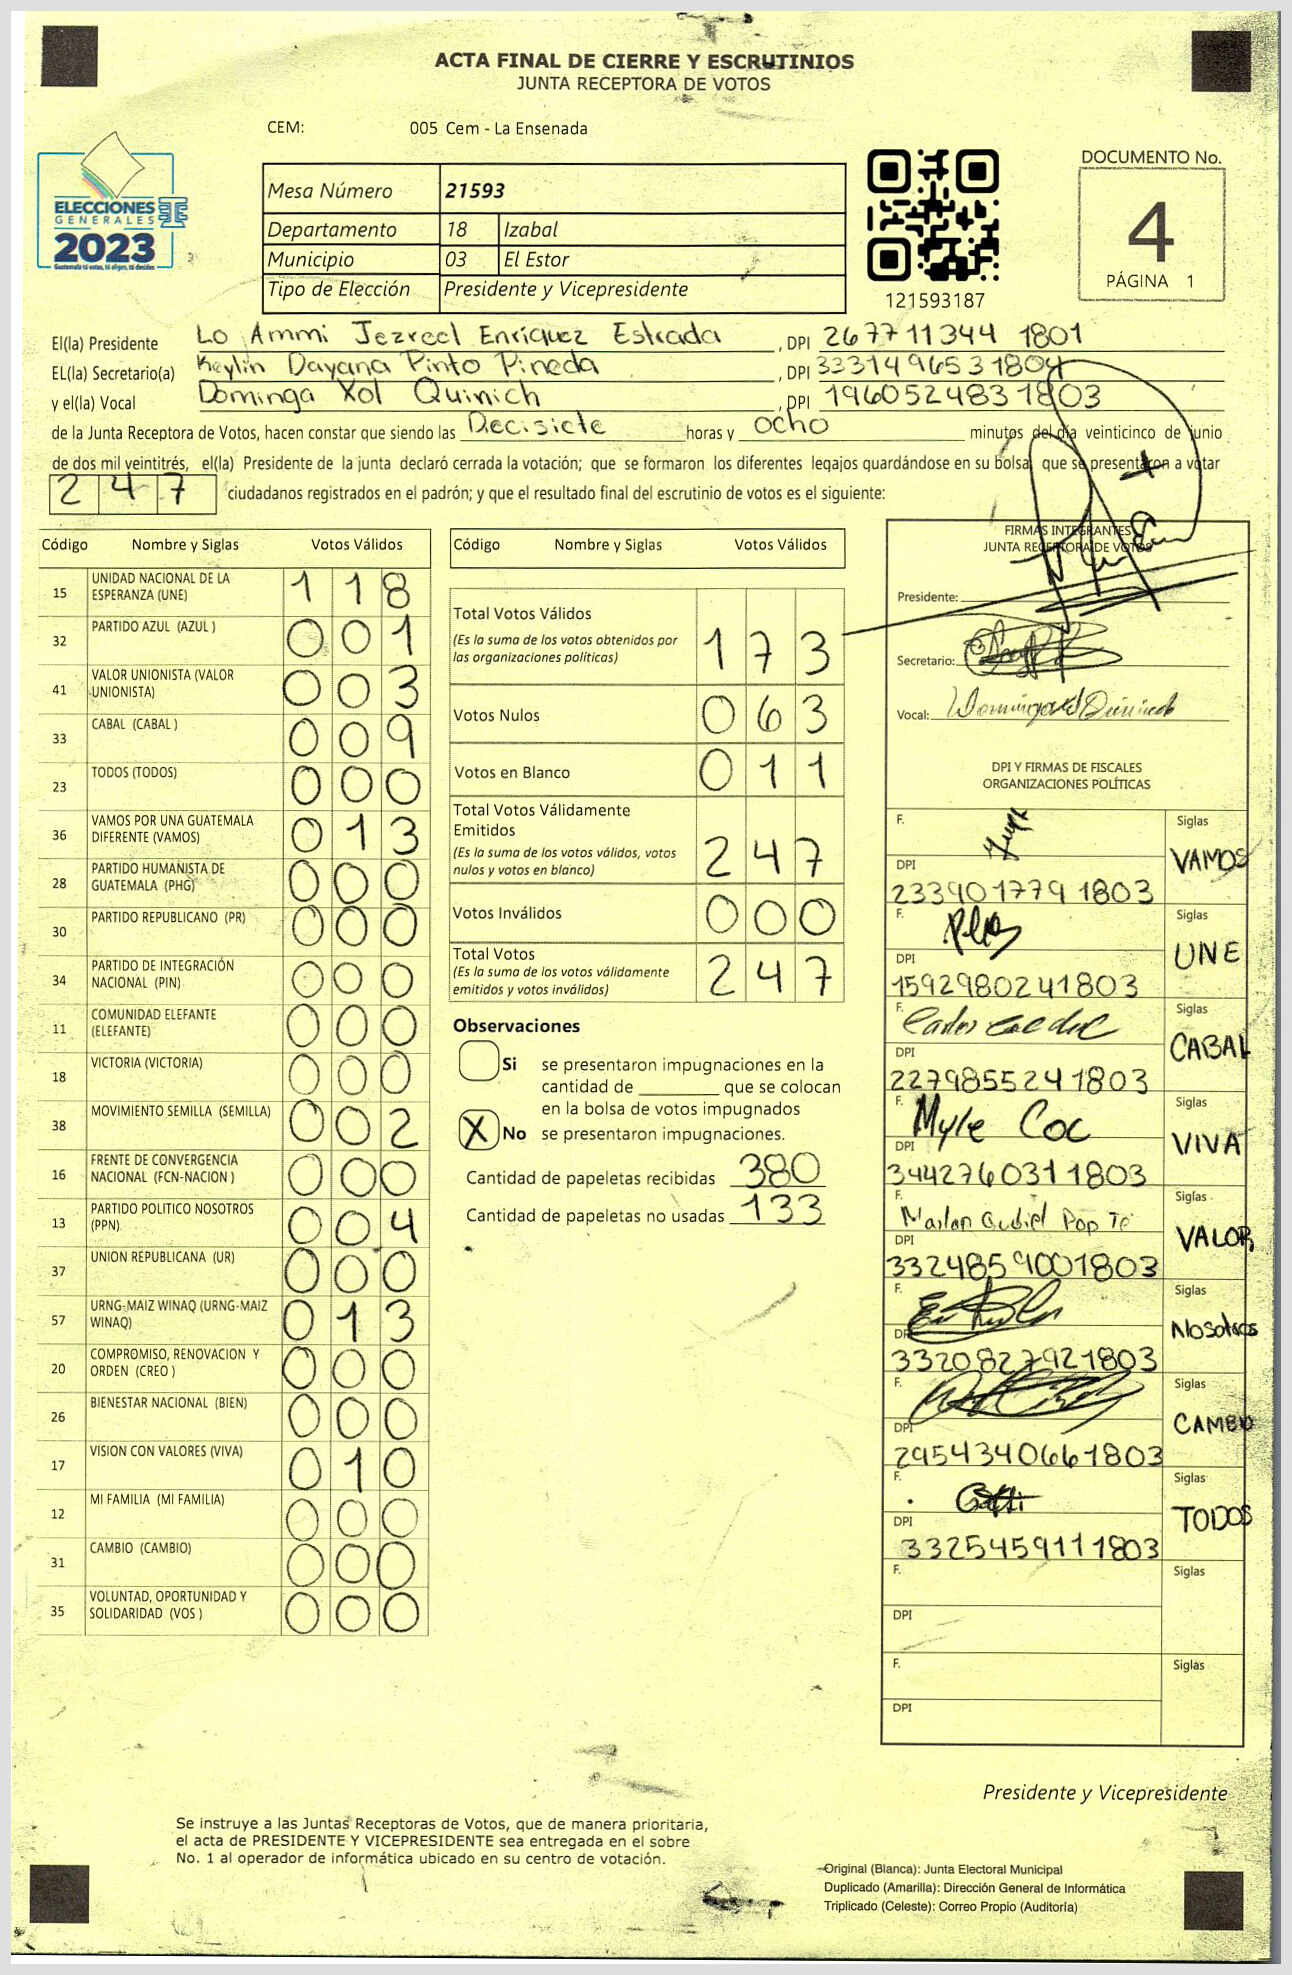 ACTA FINAL DE CIERRE Y ESCRUTINIOS
JUNTA RECEPTORA DE VOTOS
CEM: 005 Cem - La Ensenada
ELECCIONES
GENERALES
2023
Guatemala tú votas, tú eliges, tú decides
Mesa Número 21593
Departamento 18 Izabal
Municipio 03 El Estor
Tipo de Elección Presidente y Vicepresidente
121593187
DOCUMENTO No.
4
PÁGINA 1
El(la) Presidente Lo Ammi Jezreel Enríquez Estrada, DPI 267711344 1801
EL(la) Secretario(a) Keylin Dayana Pinto Pineda, DPI 3331496531804
y el(la) Vocal Dominga Xol Quinich, DPI 1960524831803
de la Junta Receptora de Votos, hacen constar que siendo las Decisiete horas y ocho minutos del día veinticinco de junio
de dos mil veintitrés, el(la) Presidente de la junta declaró cerrada la votación; que se formaron los diferentes legajos guardándose en su bolsa, que se presentaron a votar
247 ciudadanos registrados en el padrón; y que el resultado final del escrutinio de votos es el siguiente:
Código Nombre y Siglas Votos Válidos
15 UNIDAD NACIONAL DE LA ESPERANZA (UNE) 118
32 PARTIDO AZUL (AZUL ) 001
41 VALOR UNIONISTA (VALOR UNIONISTA) 003
33 CABAL (CABAL ) 009
23 TODOS (TODOS) 000
36 VAMOS POR UNA GUATEMALA DIFERENTE (VAMOS) 013
28 PARTIDO HUMANISTA DE GUATEMALA (PHG) 000
30 PARTIDO REPUBLICANO (PR) 000
34 PARTIDO DE INTEGRACIÓN NACIONAL (PIN) 000
11 COMUNIDAD ELEFANTE (ELEFANTE) 000
18 VICTORIA (VICTORIA) 000
38 MOVIMIENTO SEMILLA (SEMILLA) 002
16 FRENTE DE CONVERGENCIA NACIONAL (FCN-NACION ) 000
13 PARTIDO POLITICO NOSOTROS (PPN) 004
37 UNION REPUBLICANA (UR) 000
57 URNG-MAIZ WINAQ (URNG-MAIZ WINAQ) 013
20 COMPROMISO, RENOVACION Y ORDEN (CREO ) 000
26 BIENESTAR NACIONAL (BIEN) 000
17 VISION CON VALORES (VIVA) 010
12 MI FAMILIA (MI FAMILIA) 000
31 CAMBIO (CAMBIO) 000
35 VOLUNTAD, OPORTUNIDAD Y SOLIDARIDAD (VOS ) 000
Código Nombre y Siglas Votos Válidos
Total Votos Válidos 173
(Es la suma de los votos obtenidos por
las organizaciones políticas)
Votos Nulos 063
Votos en Blanco 011
Total Votos Válidamente
Emitidos 247
(Es la suma de los votos válidos, votos
nulos y votos en blanco)
Votos Inválidos 000
Total Votos 247
(Es la suma de los votos válidamente
emitidos y votos inválidos)
Observaciones
Si se presentaron impugnaciones en la
cantidad de ________ que se colocan
en la bolsa de votos impugnados
X No se presentaron impugnaciones.
Cantidad de papeletas recibidas 380
Cantidad de papeletas no usadas 133
FIRMAS INTEGRANTES
JUNTA RECEPTORA DE VOTOS
Presidente:
Secretario:
Vocal:
DPI Y FIRMAS DE FISCALES
ORGANIZACIONES POLÍTICAS
F. Siglas VAMOS
DPI 233901779 1803
F. Siglas UNE
DPI 1592980241803
F. Siglas CABAL
DPI 2279855241803
F. Myle Coc Siglas VIVA
DPI 3442760311803
F. Marlon Gudiel Pop Te Siglas VALOR
DPI 3324859001803
F. Siglas Nosotros
DPI 3320827921803
F. Siglas CAMBIO
DPI 2954340661803
F. Siglas TODOS
DPI 3325459111803
F. Siglas
DPI
F. Siglas
DPI
Presidente y Vicepresidente
Se instruye a las Juntas Receptoras de Votos, que de manera prioritaria,
el acta de PRESIDENTE Y VICEPRESIDENTE sea entregada en el sobre
No. 1 al operador de informática ubicado en su centro de votación.
Original (Blanca): Junta Electoral Municipal
Duplicado (Amarilla): Dirección General de Informática
Triplicado (Celeste): Correo Propio (Auditoría)